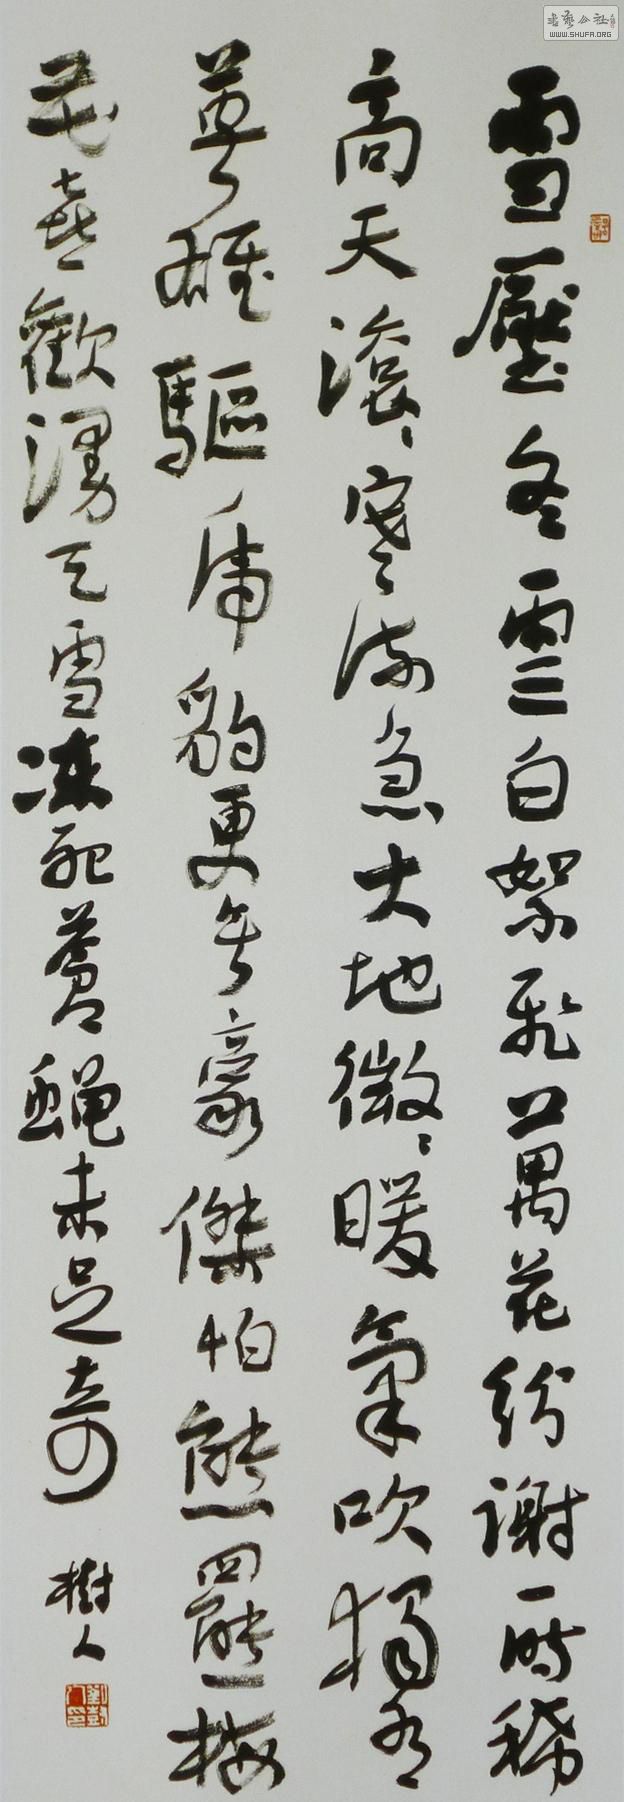 雪壓冬雲白絮飛萬花紛謝一時稀
高天滾々寒流急大地微々暖氣吹獨有
英雄驅虎豹更無豪傑怕熊羆梅
花喜歡漫天雪凍死蒼蠅未足奇
樹人
書藝公社
WWW.SHUFA.ORG